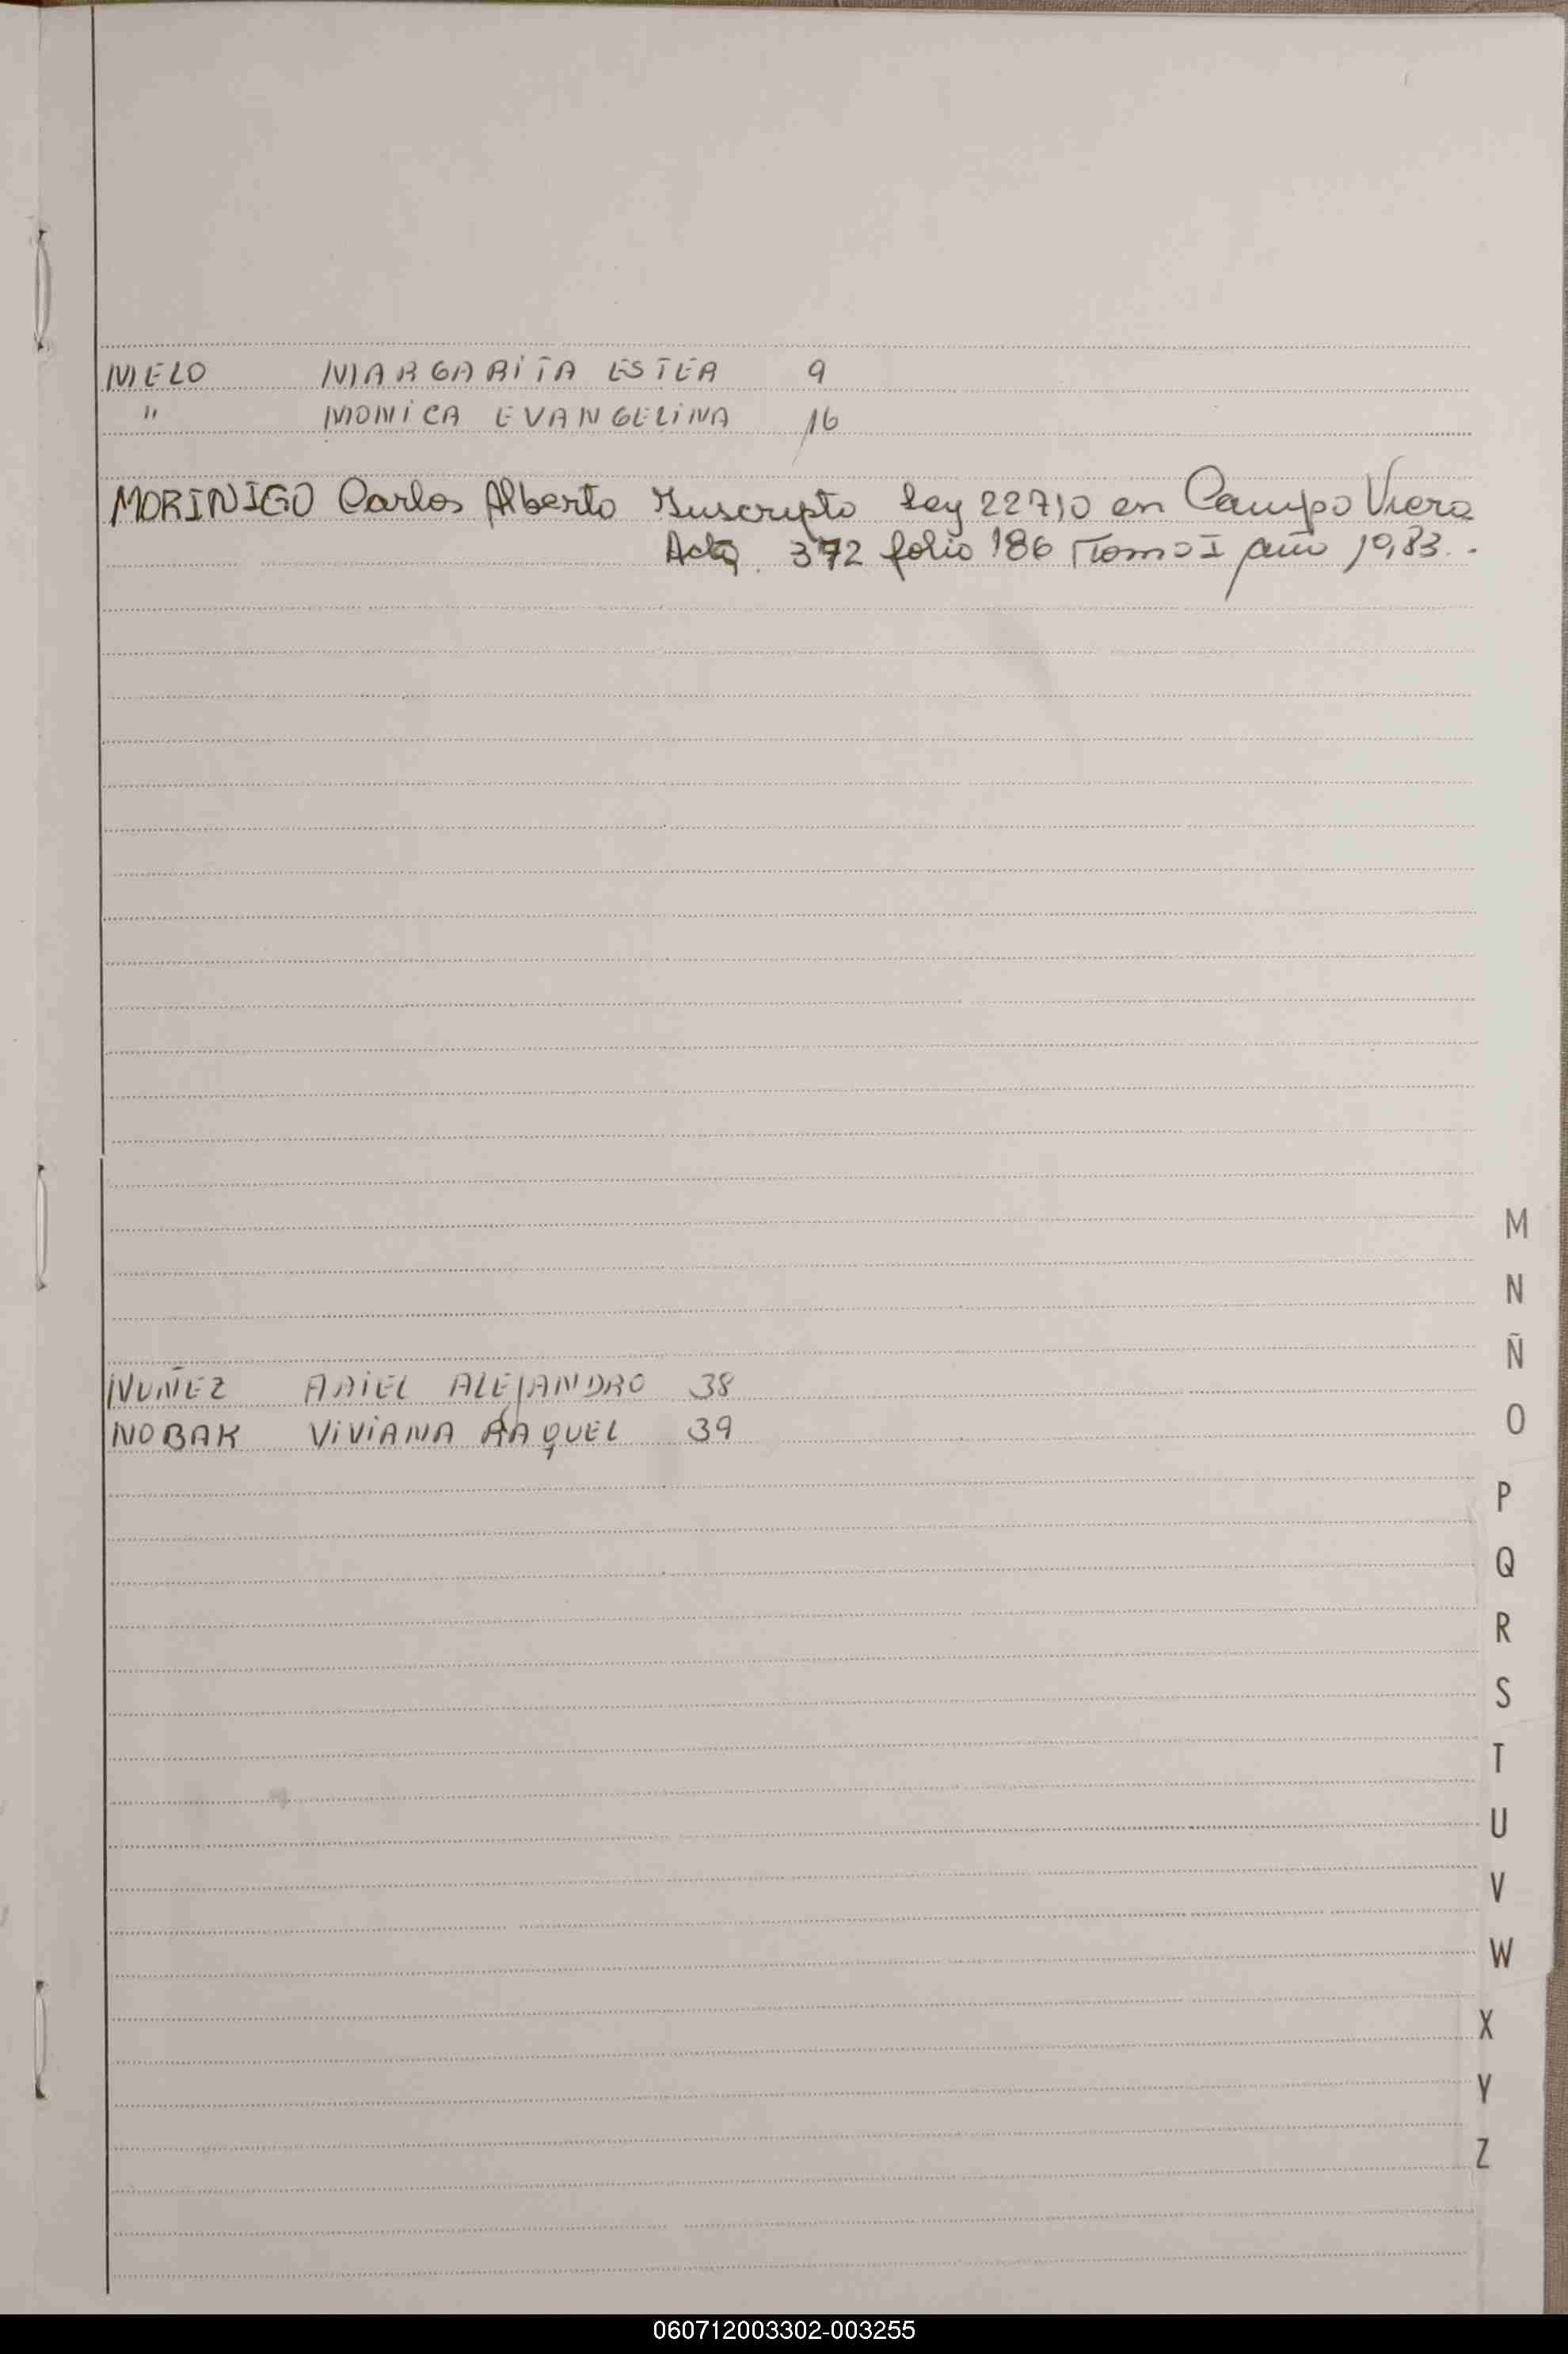 MELO MARGARITA ESTER 9
" MONICA EVANGELINA 16
MORINIGO Carlos Alberto Inscripto Ley 22710 en Campo Viera
Acta. 372 folio 186 Tomo I año 1983.
NUÑEZ ARIEL ALEJANDRO 38
NOBAK VIVIANA RAQUEL 39
M
N
Ñ
O
P
Q
R
S
T
U
V
W
X
Y
Z
060712003302-003255